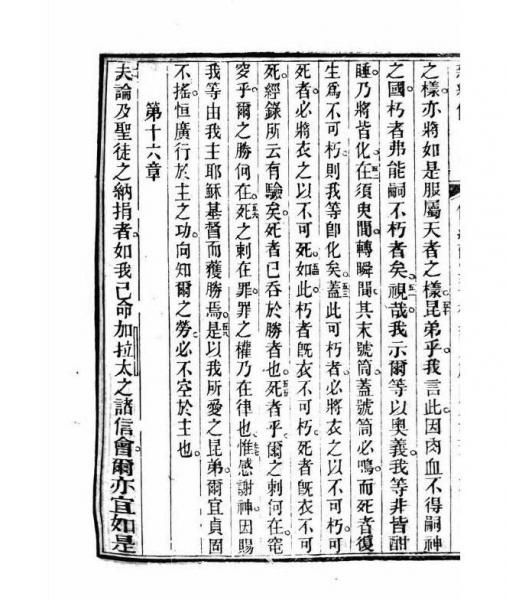 之樣亦將如是服屬天者之樣昆弟乎我言此因肉血不得嗣神
之國朽者弗能嗣不朽者矣視哉我示爾等以奧義我等非皆酣
睡乃將皆化在須臾間轉瞬間其末號筒蓋號筒必鳴而死者復
生爲不可朽則我等卽化矣蓋此可朽者必將衣之以不可朽可
死者必將衣之以不可死如此朽者旣衣不可朽死者旣衣不可
死經錄所云有驗矣死者已吞於勝者也死者乎爾之刺何在窀
穸乎爾之勝何在死之刺在罪罪之權乃在律也惟感謝神因賜
我等由我主耶穌基督而獲勝焉是以我所愛之昆弟爾宜貞固
不搖恒廣行於主之功向知爾之勞必不空於主也
第十六章
夫論及聖徒之納捐者如我己命加拉太之諸信會爾亦宜如是